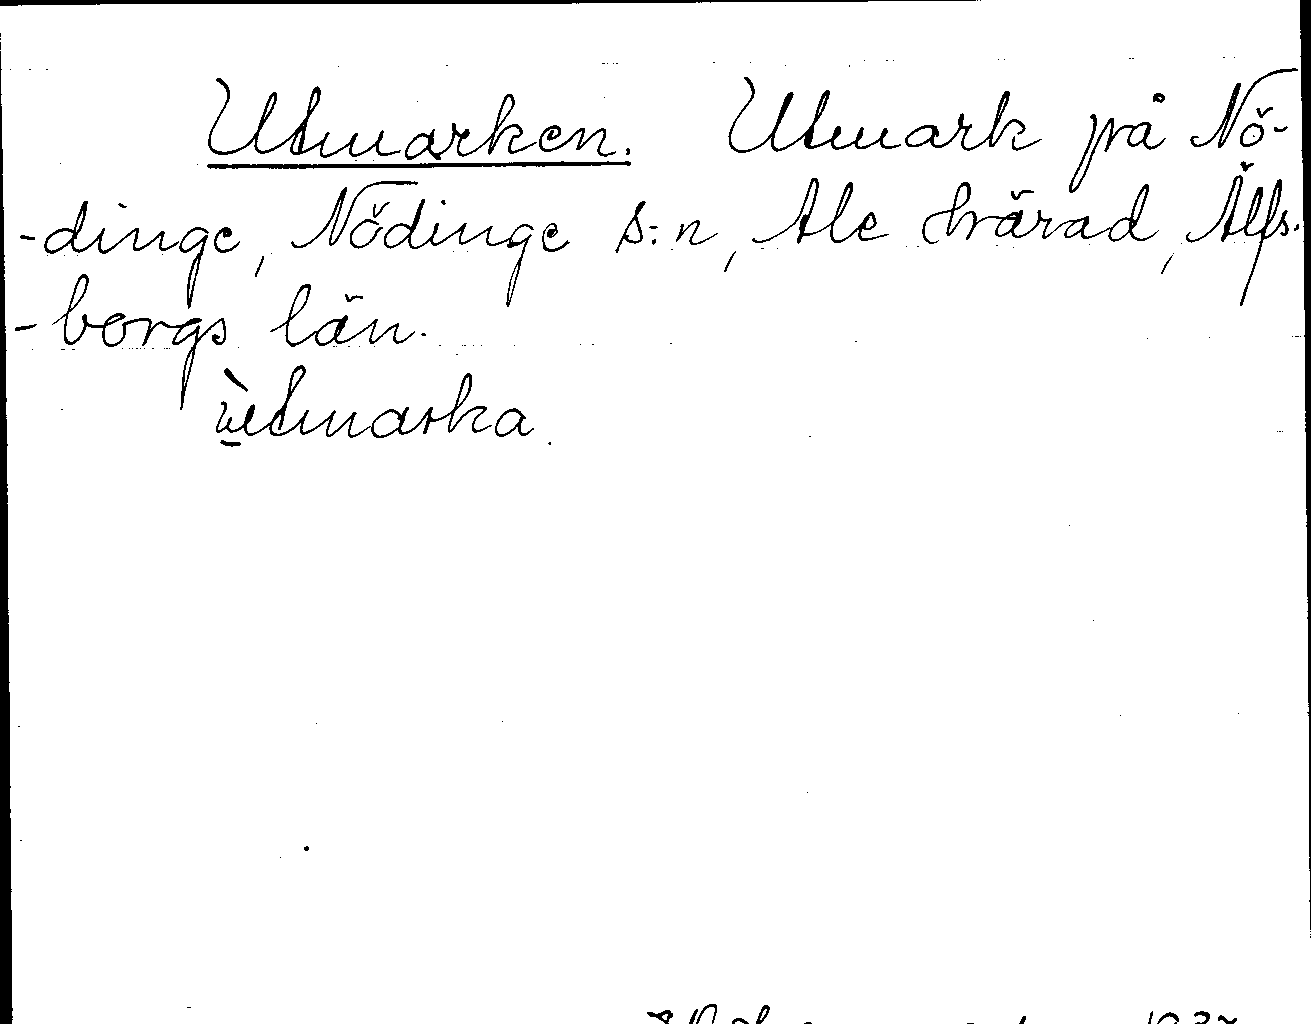 Utmarken. Utmark på Nö-
-dinge, Nödinge s:n, Ale härad, Älfs-
-borgs län.
ùtmarka.